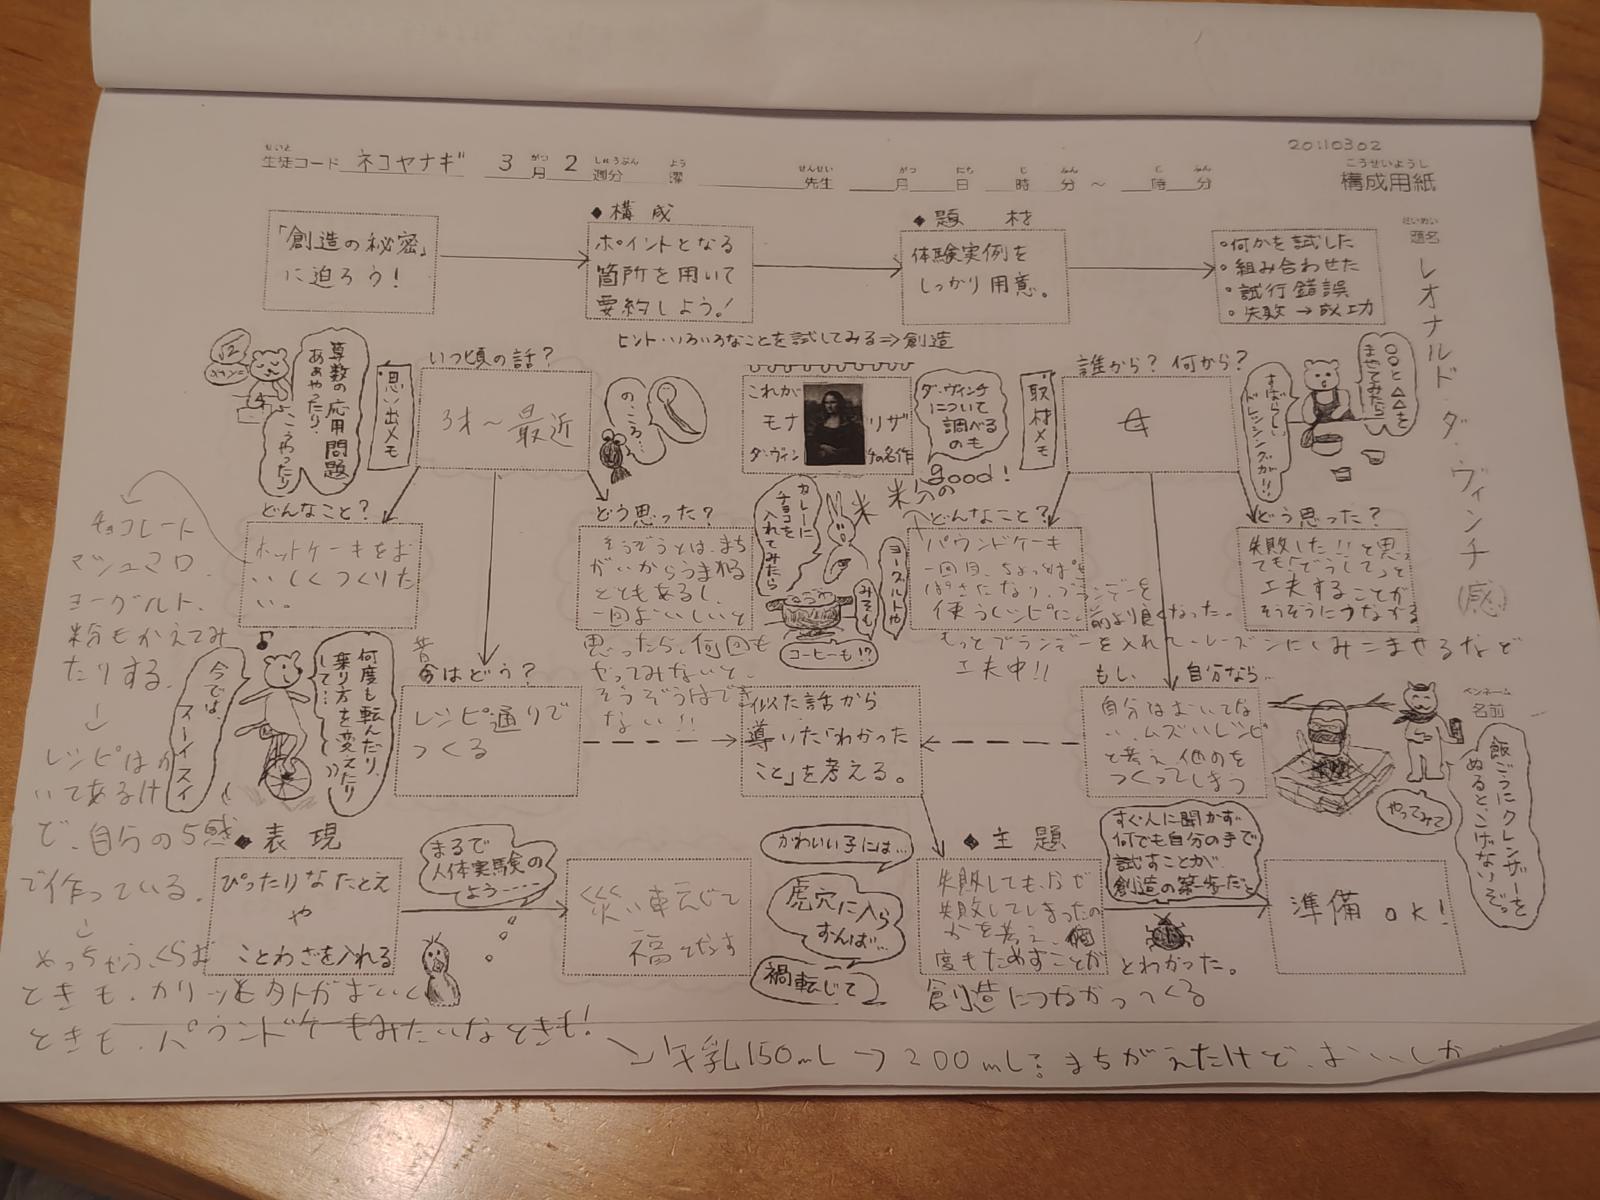 20110302
せいと
生徒コード ネコヤナギ 3月 2週分 曜 先生 月 日 時 分 ～ 時 分
こうせいようし
構成用紙
題名 レオナルド・ダ・ヴィンチ 感
「創造の秘密」
に迫ろう！
◆構成
ポイントとなる
箇所を用いて
要約しよう！
◆題材
体験実例を
しっかり用意。
・何かを試した
・組み合わせた
・試行錯誤
・失敗→成功
ヒント・いろいろなことを試してみる⇒創造
算数の応用問題
ああやったり、
こうやったり
・思い出メモ
いつ頃の話？
3才～最近
のころ…
これが
モナ リザ
ダ・ヴィンチの名作
ダ・ヴィンチ
について
調べる
のも
good！
・取材メモ
誰から？何から？
母
すばらしい
ドレッシングが!!
○○と△△を
まぜてみたら
どんなこと？
ホットケーキをお
いしくつくりた
い。
チョコレート
マシュマロ、
ヨーグルト、
粉もかえてみ
たりする。
↓
レシピはか
いてあるけ
ど、自分の5感
で作っている。
↓
めっちゃふっくらな
ときも、カリッと外がおいしく
ときも、パウンドケーキみたいなときも！
→牛乳150mL→200mL？まちがえたけど、おいしか
どう思った？
そうぞうとは、まち
がいからうまれる
こともあるし、
一回おいしいと
思ったら、何回も
やってみないと、
そうぞうはでき
ない!!
カレーに
チョコを
入れてみたら
ヨーグルトや
みそも
コーヒーも!?
どんなこと？
パウンドケーキ
一回目、ちょっとぱさ
ぱさになり、ブランデーを
使うレシピに。前より良くなった。
もっとブランデーを入れて、レーズンにしみこませるなど
工夫中!!
どう思った？
失敗した!!と思っ
ても「どうして」と
工夫することが
そうぞうにつながる
何度も転んだり、
乗り方を変えたり
して…
今では、
スーイスイ
昔
今はどう？
レシピ通りで
つくる
似た話から
導いた「わかった
こと」を考える。
もし、自分なら…
自分はおいてな
い、ムズいレシピ
と考え、他のを
つくってしまう
ペンネーム
名前
飯ごうにクレンザーを
ぬると、こげないぞっ
やってみて
◆表現
ぴったりなたとえ
や
ことわざを入れる
まるで
人体実験の
よう……
災い転じて
福となす
かわいい子には…
虎穴に入ら
ずんば…
禍転じて
◆主題
失敗しても、なぜ
失敗してしまったの
かを考え、何
度もためすことが
創造につながってくる
とわかった。
すぐ人に聞かず
何でも自分の手で
試すことが、
創造の第一歩だと
準備OK！